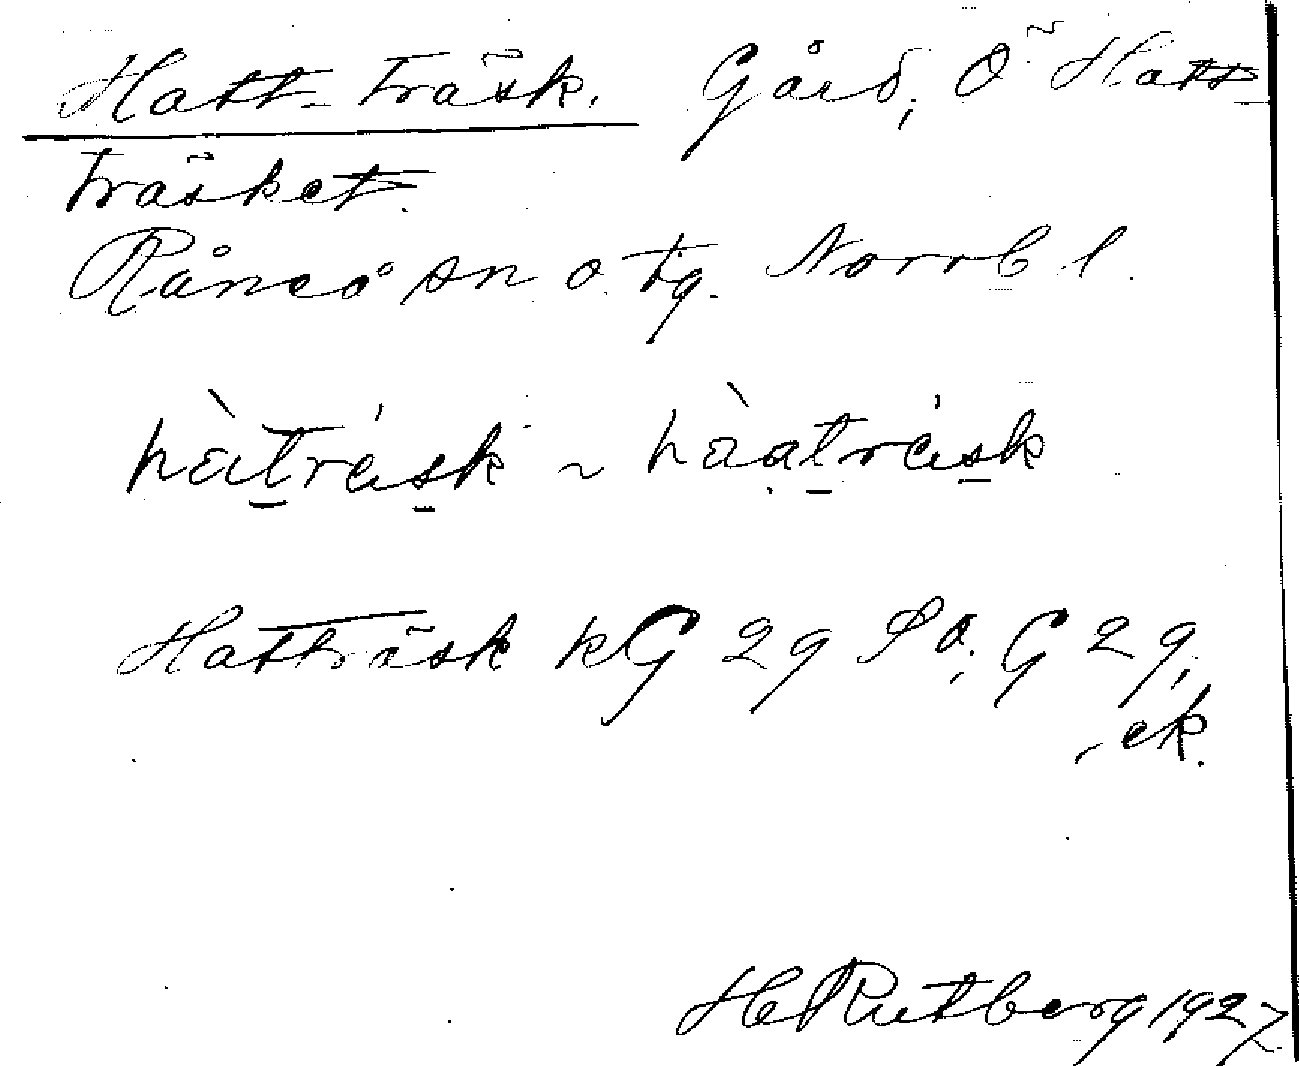 Hatt-träsk. Gård, Ö Hatt-
träsket.
Råneå sn o. tg. Norrb l.
hàtrǽsk ~ hàatrǽsk
Hatträsk kG 29 So, G 29,
ek.
HRutberg 1927